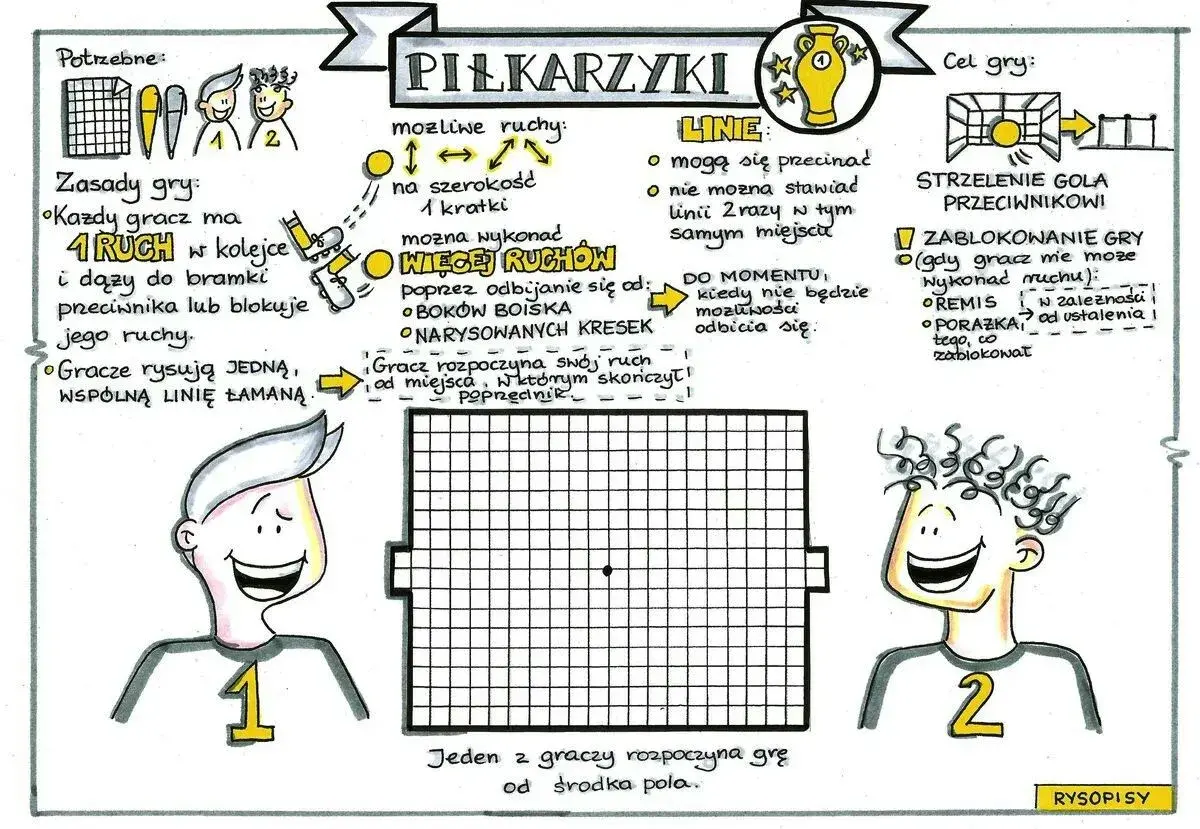 PIŁKARZYKI
1
Potrzebne:
1
2
Zasady gry:
Każdy gracz ma
1 RUCH w kolejce
i dąży do bramki
przeciwnika lub blokuje
jego ruchy.
Gracze rysują JEDNĄ,
WSPÓLNĄ LINIĘ ŁAMANĄ.
Gracz rozpoczyna swój ruch
od miejsca, w którym skończył
poprzednik.
możliwe ruchy:
na szerokość
1 kratki
można wykonać
WIĘCEJ RUCHÓW
poprzez odbijanie się od:
BOKÓW BOISKA
NARYSOWANYCH KRESEK
DO MOMENTU,
kiedy nie będzie
możliwości
odbicia się.
LINIE:
mogą się przecinać
nie można stawiać
linii 2 razy w tym
samym miejscu
Cel gry:
STRZELENIE GOLA
PRZECIWNIKOWI
! ZABLOKOWANIE GRY
(gdy gracz nie może
wykonać ruchu):
REMIS
PORAŻKA,
tego, co
zablokował
w zależności
od ustalenia
1
2
Jeden z graczy rozpoczyna grę
od środka pola.
RYSOPISY